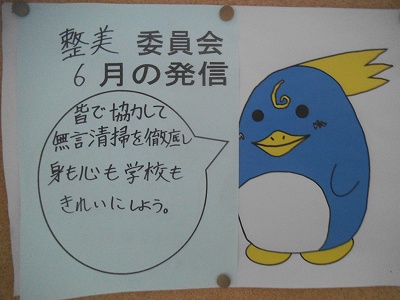 整美 委員会
6月の発信
皆で協力して
無言清掃を徹底し
身も心も学校も
きれいにしよう。